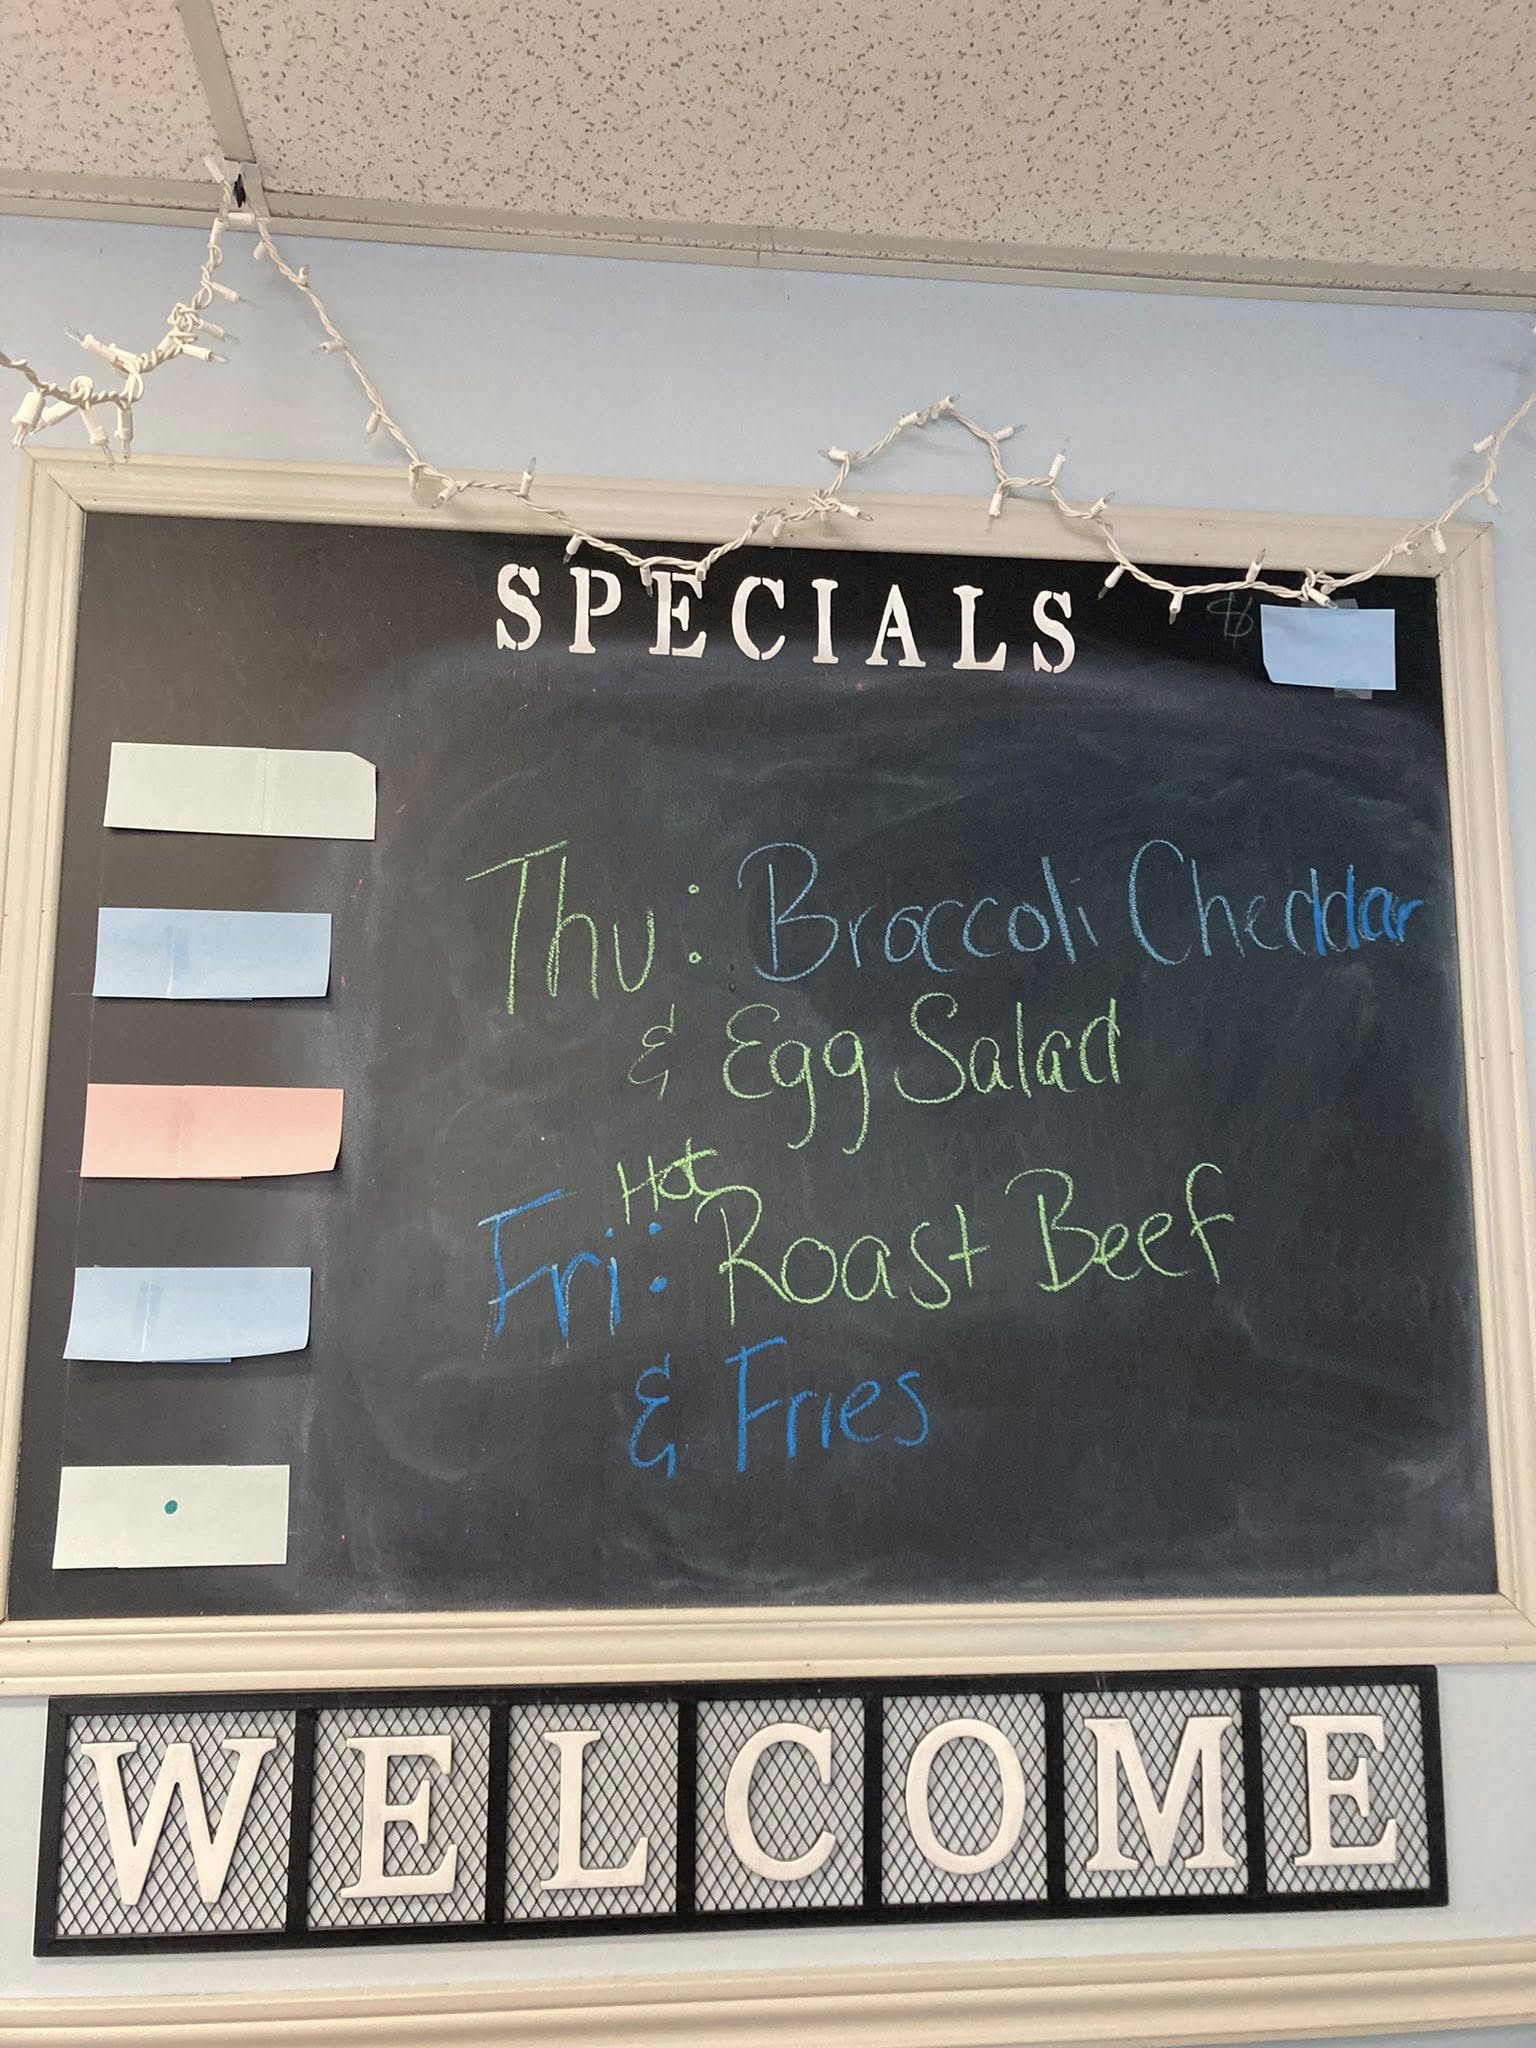 SPECIALS
Thu: Broccoli Cheddar
& Egg Salad
Hot
Fri: Roast Beef
& Fries
WELCOME